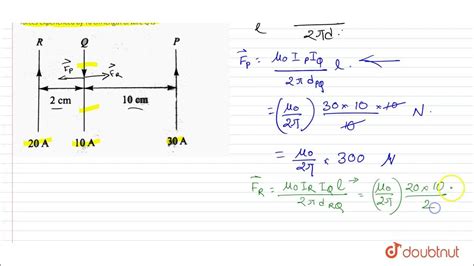 R Q P
F⃗P F⃗R
2 cm 10 cm
20 A 10 A 30 A
l 2πd
F⃗P = μ₀ IP IQ / 2π dPQ l ←
= (μ₀ / 2π) 30 × 10 × 10 / 10 N
= μ₀ / 2π × 300 N
F⃗R = μ₀ IR IQ l / 2π dRQ → = (μ₀ / 2π) 20 × 10 / 2
doubtnut